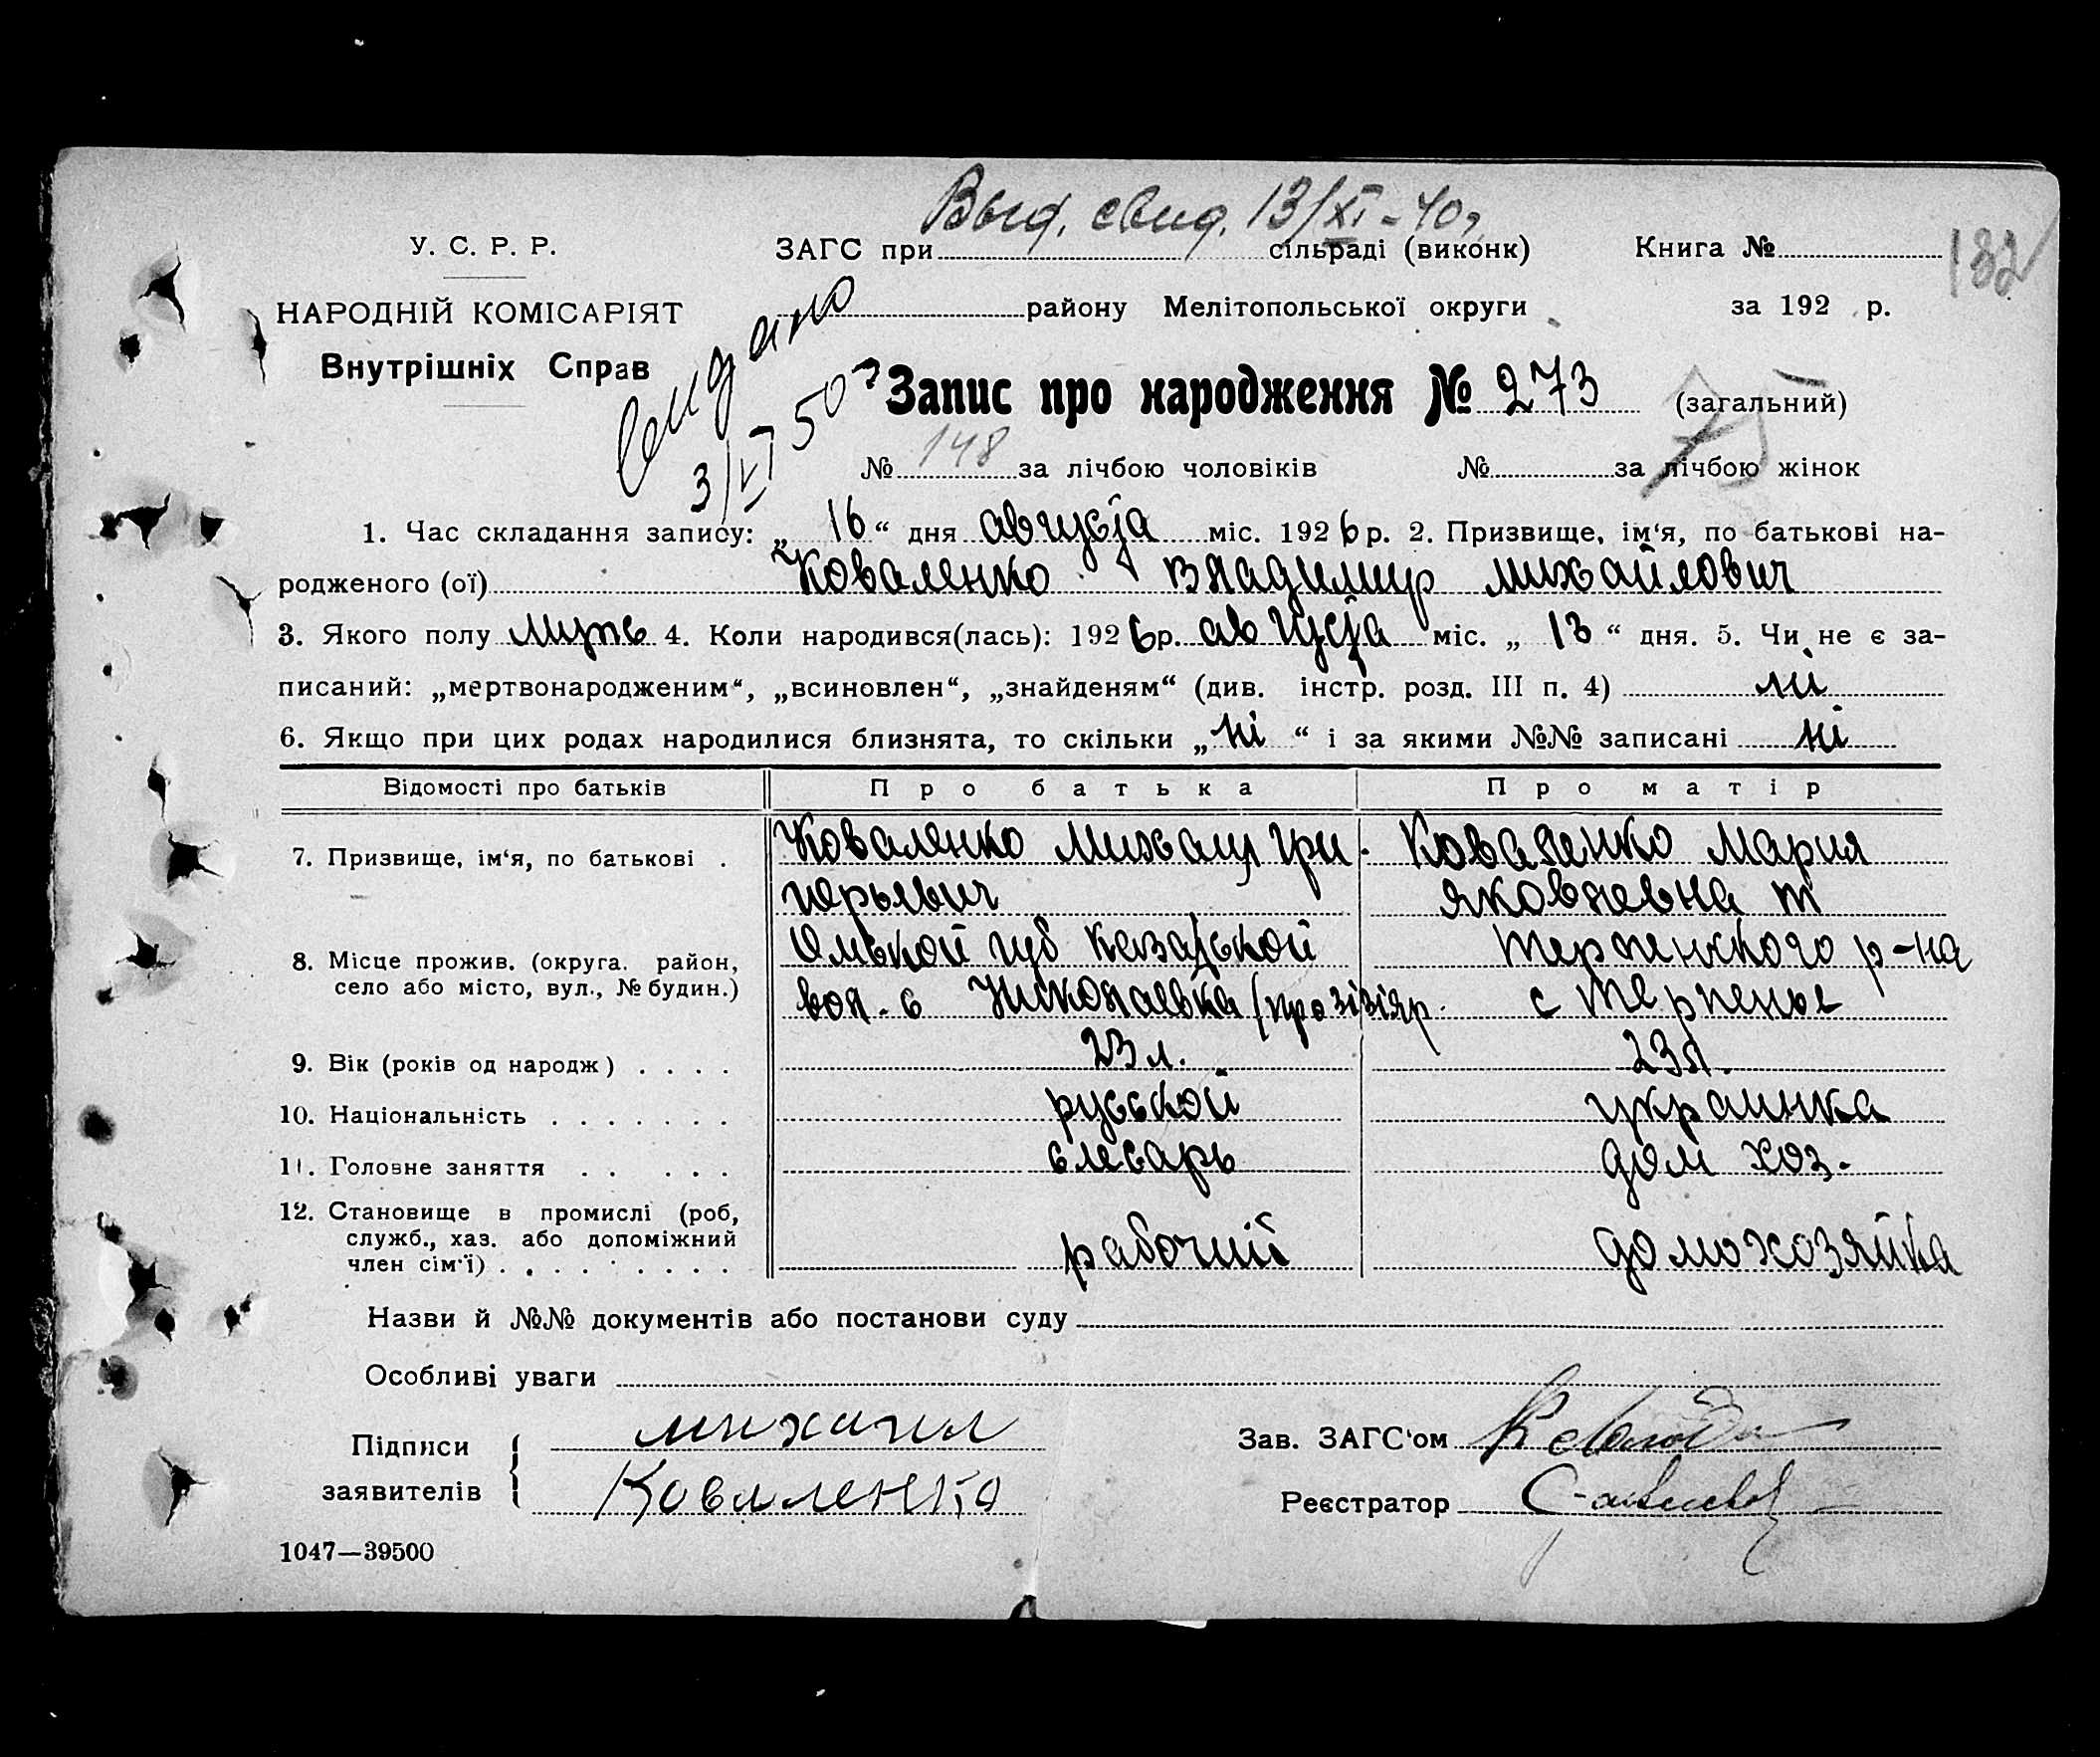 Выд. свид. 13/XI-40г.
У. С. Р. Р.
ЗАГС при сільраді (виконк)
Книга №
132
НАРОДНІЙ КОМІСАРІЯТ
району Мелітопольської округи
за 192 р.
Внутрішніх Справ
3/VI 50г
Запис про народження № 273 (загальний)
№ 148 за лічбою чоловіків № за лічбою жінок
1. Час складання запису: „ 16 “ дня августа міс. 1926 р. 2. Призвище, ім‘я, по батькові на-
родженого (ої) Коваленко Владимир Михайлович
3. Якого полу муж 4. Коли народився(лась): 1926р. августа міс. „ 13 “ дня. 5. Чи не є за-
писаний: „мертвонародженим“, „всиновлен“, „знайденям“ (див. інстр. розд. III п. 4) ні
6. Якщо при цих родах народилися близнята, то скільки „ ні “ і за якими №№ записані ні
Відомості про батьків Про батька Про матір
7. Призвище, ім‘я, по батькові . Коваленко Михаил Гри Коваленко Мария
горьевич Яковлевна
8. Місце прожив. (округа. район, Омской губ Терпенского р-на
село або місто, вул., № будин.) вол. с Николаевка с Терпенье
9. Вік (років од народж) . . . . 23 л. 23 л.
10. Національність . . . . . . . русской украинка
11. Головне заняття . . . . . слесарь дом хоз.
12. Становище в промислі (роб,
служб., хаз. або допоміжний
член сім‘ї) . . . . . . . . . рабочий домохозяйка
Назви й №№ документів або постанови суду
Особливі уваги
Підписи Михаил Зав. ЗАГС‘ом
заявителів Коваленко Реєстратор
1047—39500